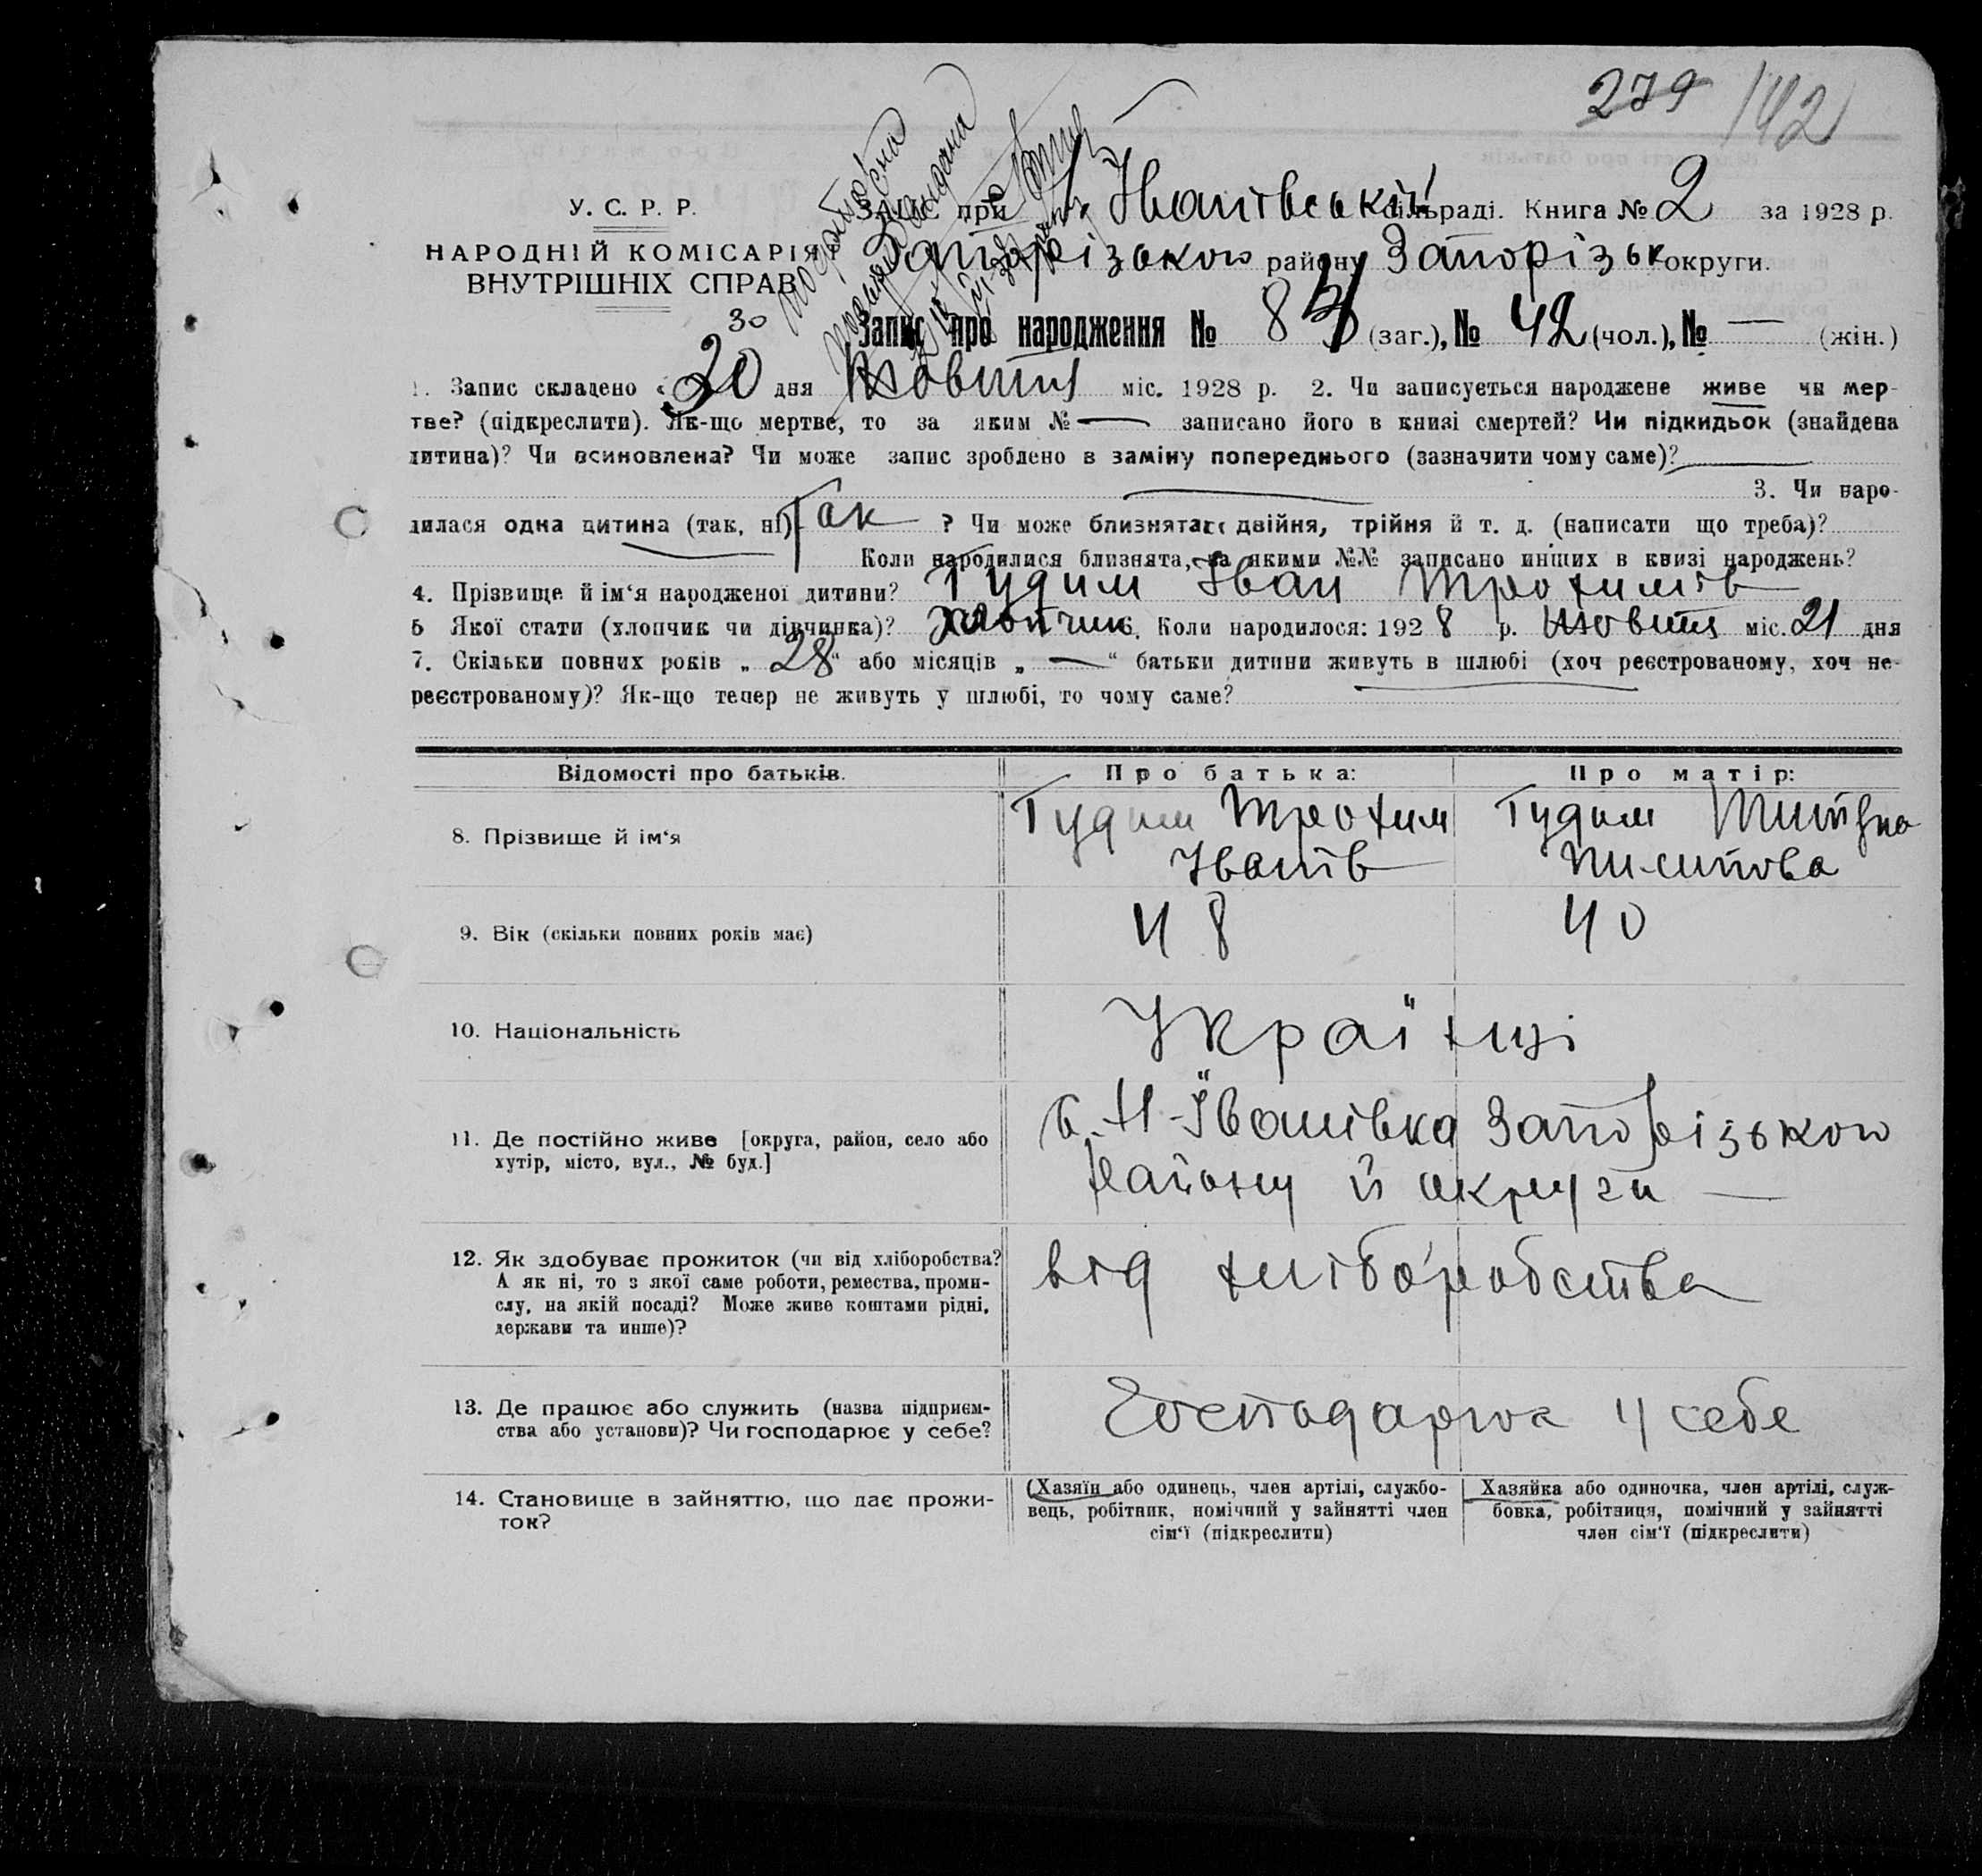 279 142
У. С. Р. Р.
НАРОДНІЙ КОМІСАРІЯТ
ВНУТРІШНІХ СПРАВ
ЗАГС при Н. Іванівській сільраді. Книга № 2 за 1928 р.
Запорізького району Запорізьк округи.
30
Запис про народження № 8 (заг.), № 42 (чол.), № — (жін.)
1. Запис складено „30 дня Жовтня міс. 1928 р. 2. Чи записується народжене живе чи мер-
тве? (підкреслити). Як-що мертве, то за яким № — записано його в книзі смертей? Чи підкидьок (знайдена
дитина)? Чи всиновлена? Чи може запис зроблено в заміну попереднього (зазначити чому саме)? —
3. Чи наро-
дилася одна дитина (так, ні) Так ? Чи може близнята: двійня, трійня й т. д. (написати що треба)?
Коли народилися близнята, за якими №№ записано инших в книзі народжень?
4. Прізвище й ім‘я народженої дитини? Гудим Іван Трохимів
5 Якої стати (хлопчик чи дівчинка)? хлопчик 6. Коли народилося: 1928 р. Жовтня міс. 21 дня
7. Скільки повних років „ 28 “ або місяців „ — “ батьки дитини живуть в шлюбі (хоч реєстрованому, хоч не-
реєстрованому)? Як-що тепер не живуть у шлюбі, то чому саме?
Відомості про батьків. Про батька: Про матір:
8. Прізвище й ім‘я Гудим Трохим Гудим
Іванів Пилипова
9. Вік (скільки повних років має) 48 40
10. Національність Українці
11. Де постійно живе [округа, район, село або с. Н-Іванівка Запорізького
хутір, місто, вул., № буд.] Району й округи —
12. Як здобуває прожиток (чи від хліборобства? від хліборобства
А як ні, то з якої саме роботи, ремества, проми-
слу, на якій посаді? Може живе коштами рідні,
держави та инше)?
13. Де працює або служить (назва підприєм- Господарює у себе
ства або установи)? Чи господарює у себе?
14. Становище в зайняттю, що дає прожи- (Хазяїн або одинець, член артілі, службо- Хазяйка або одиночка, член артілі, служ-
ток? вець, робітник, помічний у зайнятті член бовка, робітниця, помічний у зайнятті
сім‘ї (підкреслити) член сім‘ї (підкреслити)